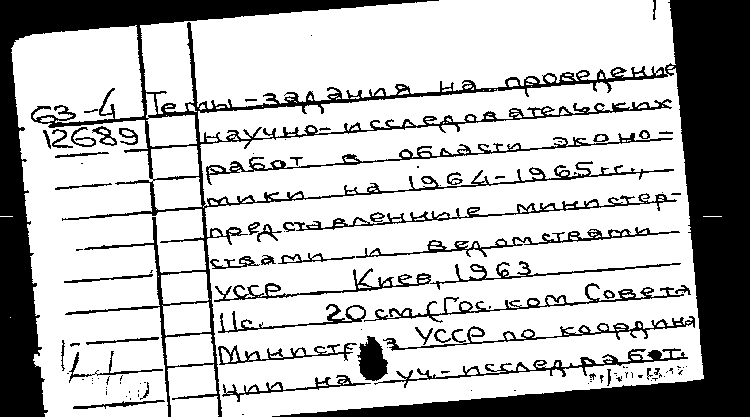 63-4 Темы-задания на проведение
12689 научно-исследовательских
работ в области эконо-
мики на 1964-1965 гг.,
представленные министер-
ствами и ведомствами
УССР Киев, 1963
11с. 20 см. (Гос. ком. Совета
Министров УССР по координа
ции науч.-исслед. работ.